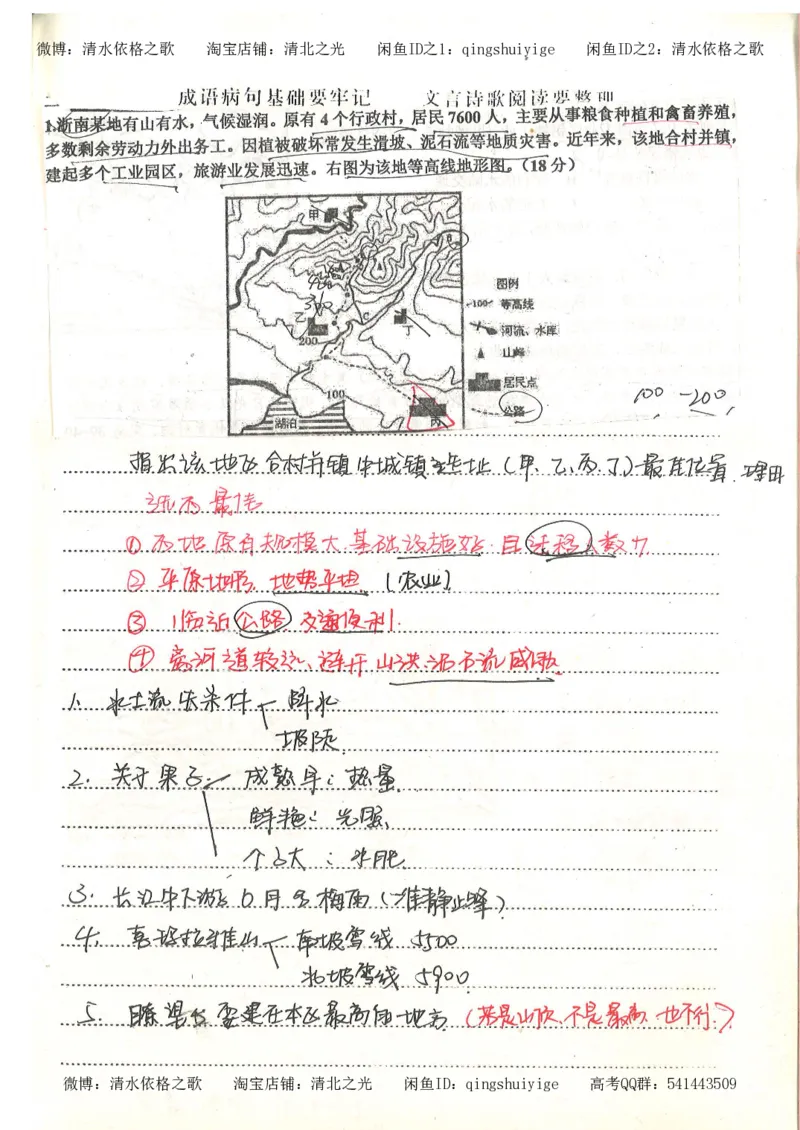 微博：清水依格之歌 淘宝店铺：清北之光 闲鱼ID之1：qingshuiyige 闲鱼ID之2：清水依格之歌
成语病句基础要牢记 文言诗歌阅读要整理
1.浙南某地有山有水，气候湿润。原有4个行政村，居民7600人，主要从事粮食种植和禽畜养殖，
多数剩余劳动力外出务工。因植被破坏常发生滑坡、泥石流等地质灾害。近年来，该地合村并镇，
建起多个工业园区，旅游业发展迅速。右图为该地等高线地形图。（18分）
甲
图例
-100- 等高线
河流、水库
山峰
居民点
公路
乙
C
丁
200
100
湖泊
丙
300
100 -200
指出该地区合村并镇中城镇选址（甲、乙、丙、丁）最佳位置 理由
选丙最佳
①丙地原有规模大 基础设施好 且迁移人数少
②平原地形，地势平坦 [农业]
③临近公路 交通便利.
④离河道较远、避开山洪泥石流威胁.
1. 水土流失条件 降水
坡度
2. 关于果子： 成熟早：热量
鲜艳：光照
个头大：水肥
3. 长江中下游 6月多梅雨（准静止峰）
4. 喜玛拉雅山 南坡雪线 5500
北坡雪线 5900
5. 瞭望塔 要建在本区最高的地方（若是山顶、不是最高 也不行.）
微博：清水依格之歌 淘宝店铺：清北之光 闲鱼ID：qingshuiyige 高考QQ群：541443509